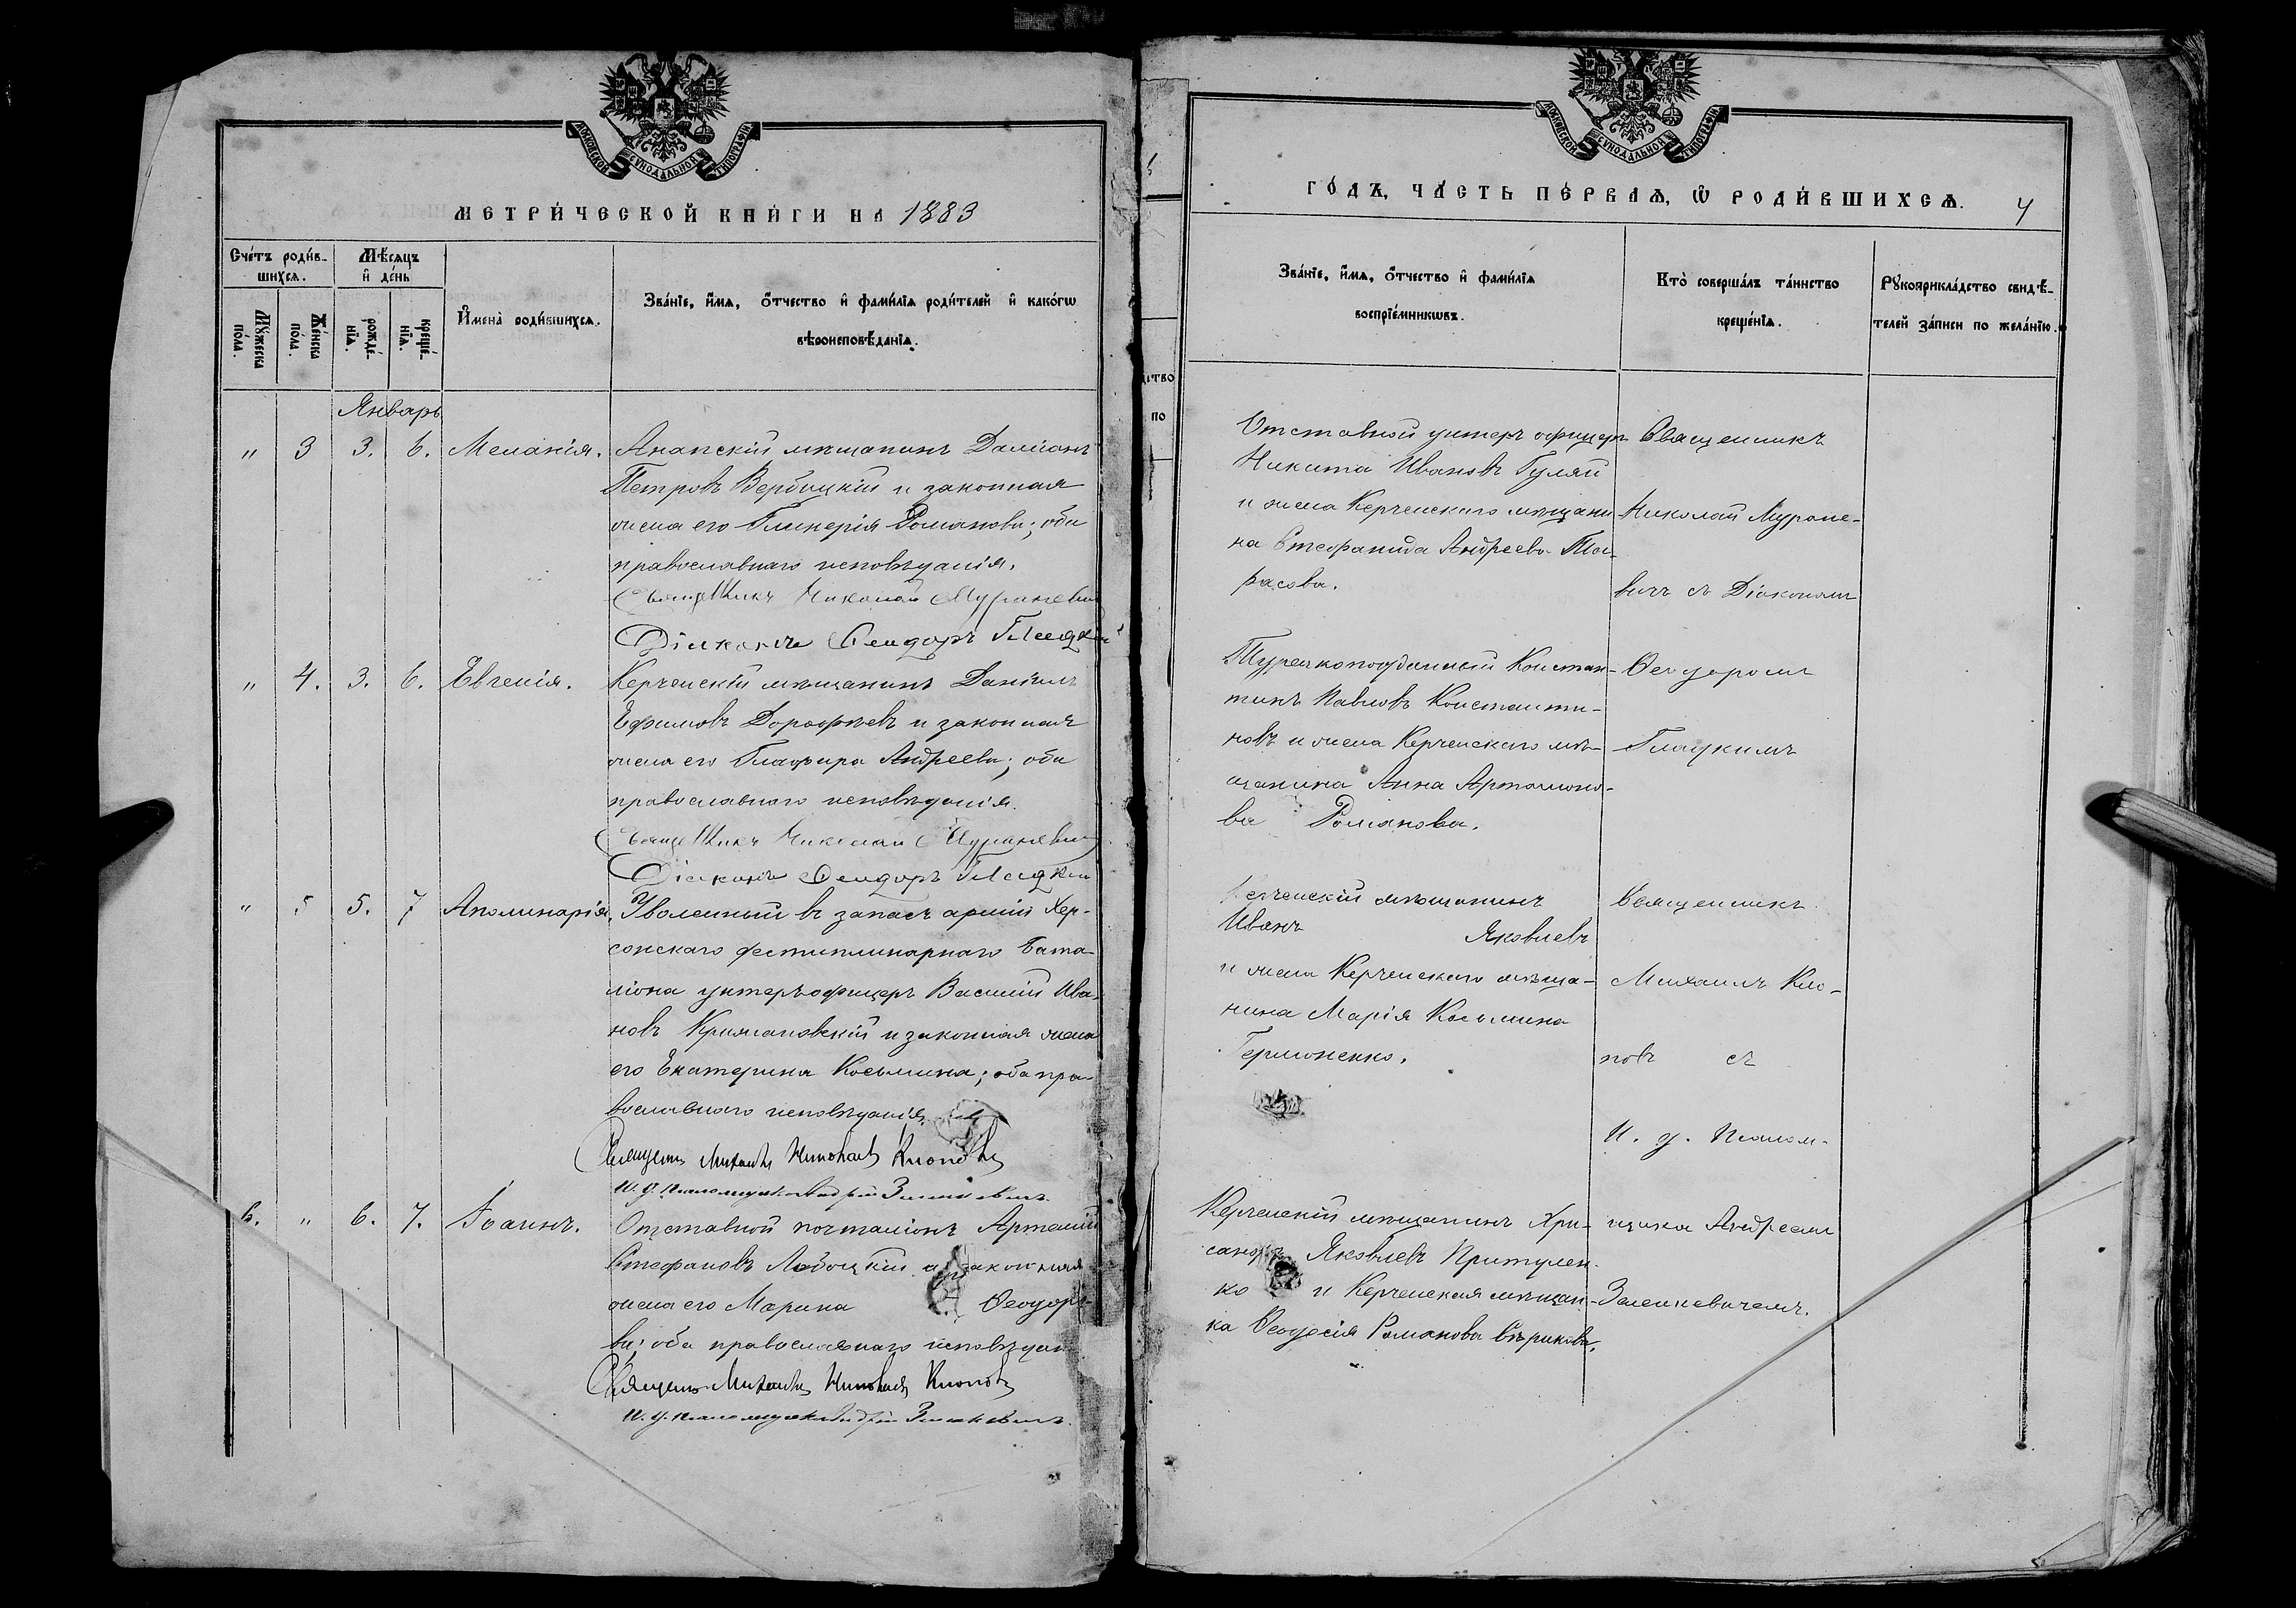 МОСКОВСКОЙ СѴНОДАЛЬНОЙ ТИПОГРАФІИ
МЕТРИ́ЧЕСКОЙ КНИ́ГИ НА 1883
Сче́тъ роди́в-
шихсѧ.
Мѣ́сѧцъ
и҆ де́нь
Мꙋ́жеска по́ла.
Же́нска по́ла.
рожде́-
нїѧ.
креще́-
нїѧ.
И҆мена̀ роди́вшихсѧ.
Зва́нїе, и҆́мѧ, ѻ҆́тчество и҆ фами́лїѧ роди́телей и҆ како́гѡ
вѣроисповѣ́данїѧ.
Январь
" 3 3. 6. Меланія.
Анапскій мѣщанинъ Даміанъ
Петровъ Вербицкій и законная
жена его Гликерія Романова; оба
православнаго исповѣданія.
Священникъ Николай Мураневичъ
Діаконъ Феодоръ Гладкій
" 4. 3. 6. Евгенія.
Керченскій мѣщанинъ Даніилъ
Ефимовъ Дорофѣевъ и законная
жена его Глафира Андреева; оба
православнаго исповѣданія.
Священникъ Николай Мураневичъ
Діаконъ Феодоръ Гладкій
" 5 5. 7 Аполинарія.
Уволенный въ запасъ арміи Хер-
сонскаго десциплинарнаго бата-
ліона унтеръ-офицеръ Василій Ива-
новъ Крижановскій и законная жена
его Екатерина Косьмина; оба пра-
вославнаго исповѣданія.
Священникъ Михаилъ Николаевъ Клоповъ
И. д. псаломщика Андрей Зеленкевичъ
6. " 6. 7. Іоаннъ.
Отставной почталіонъ Артемій
Стефановъ Любоцкій и законная
жена его Марина Феодоро-
ва; оба православнаго исповѣдан.
Священникъ Михаилъ Николаевъ Клоповъ
И. д. псаломщика Андрей Зеленкевичъ
МОСКОВСКОЙ СѴНОДАЛЬНОЙ ТИПОГРАФІИ
ГО́ДЪ, ЧА́СТЬ ПЕ́РВАѦ, Ѽ РОДИ́ВШИХСѦ. 4
Зва́нїе, и҆́мѧ, ѻ҆́тчество и҆ фами́лїѧ
воспрїе́мникѡвъ.
Кто̀ соверша́лъ та́инство
креще́нїѧ.
Рꙋкоприкла́дство свидѣ́-
телей за́писи по жела́нїю.
ство
по
Отставной унтеръ офицеръ
Никита Ивановъ Гуляй
и жена Керченскаго мѣщани-
на Стефанида Андреева Та-
расова.
Священникъ
Николай Муране-
вичъ съ Діакономъ
Турецкоподданный Констан-
тинъ Павловъ Константи-
новъ и жена Керченскаго мѣ-
щанина Анна Артамоно-
ва Романова.
Феодоромъ
Гладкимъ
Керченскій мѣщанинъ
Иванъ Яковлевъ
и жена Керченскаго мѣща-
нина Марія Косьмина
Гермоненко.
Священникъ
Михаилъ Кло-
повъ съ
И. д. Псалом-
Керченскій мѣщанинъ Хри-
санфъ Яковлевъ Притулен-
ко и Керченская мѣщан-
ка Феодосія Романова Сѣрикова.
щика Андреемъ
Зеленкевичемъ.